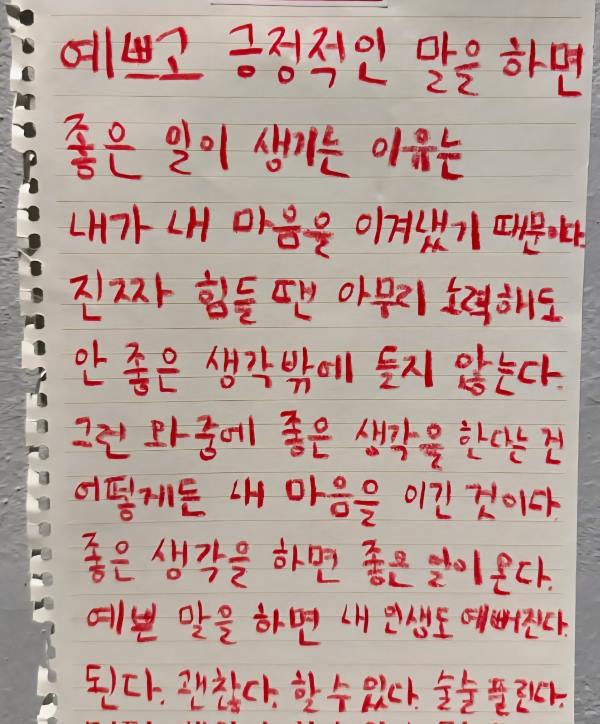 예쁘고 긍정적인 말을 하면
좋은 일이 생기는 이유는
내가 내 마음을 이겨냈기 때문이다
진짜 힘들 땐 아무리 노력해도
안 좋은 생각밖에 들지 않는다.
그런 와중에 좋은 생각을 한다는 건
어떻게든 내 마음을 이긴 것이다
좋은 생각을 하면 좋은 일이 온다.
예쁜 말을 하면 내 인생도 예뻐진다.
된다. 괜찮다. 할 수 있다. 술술 풀린다.